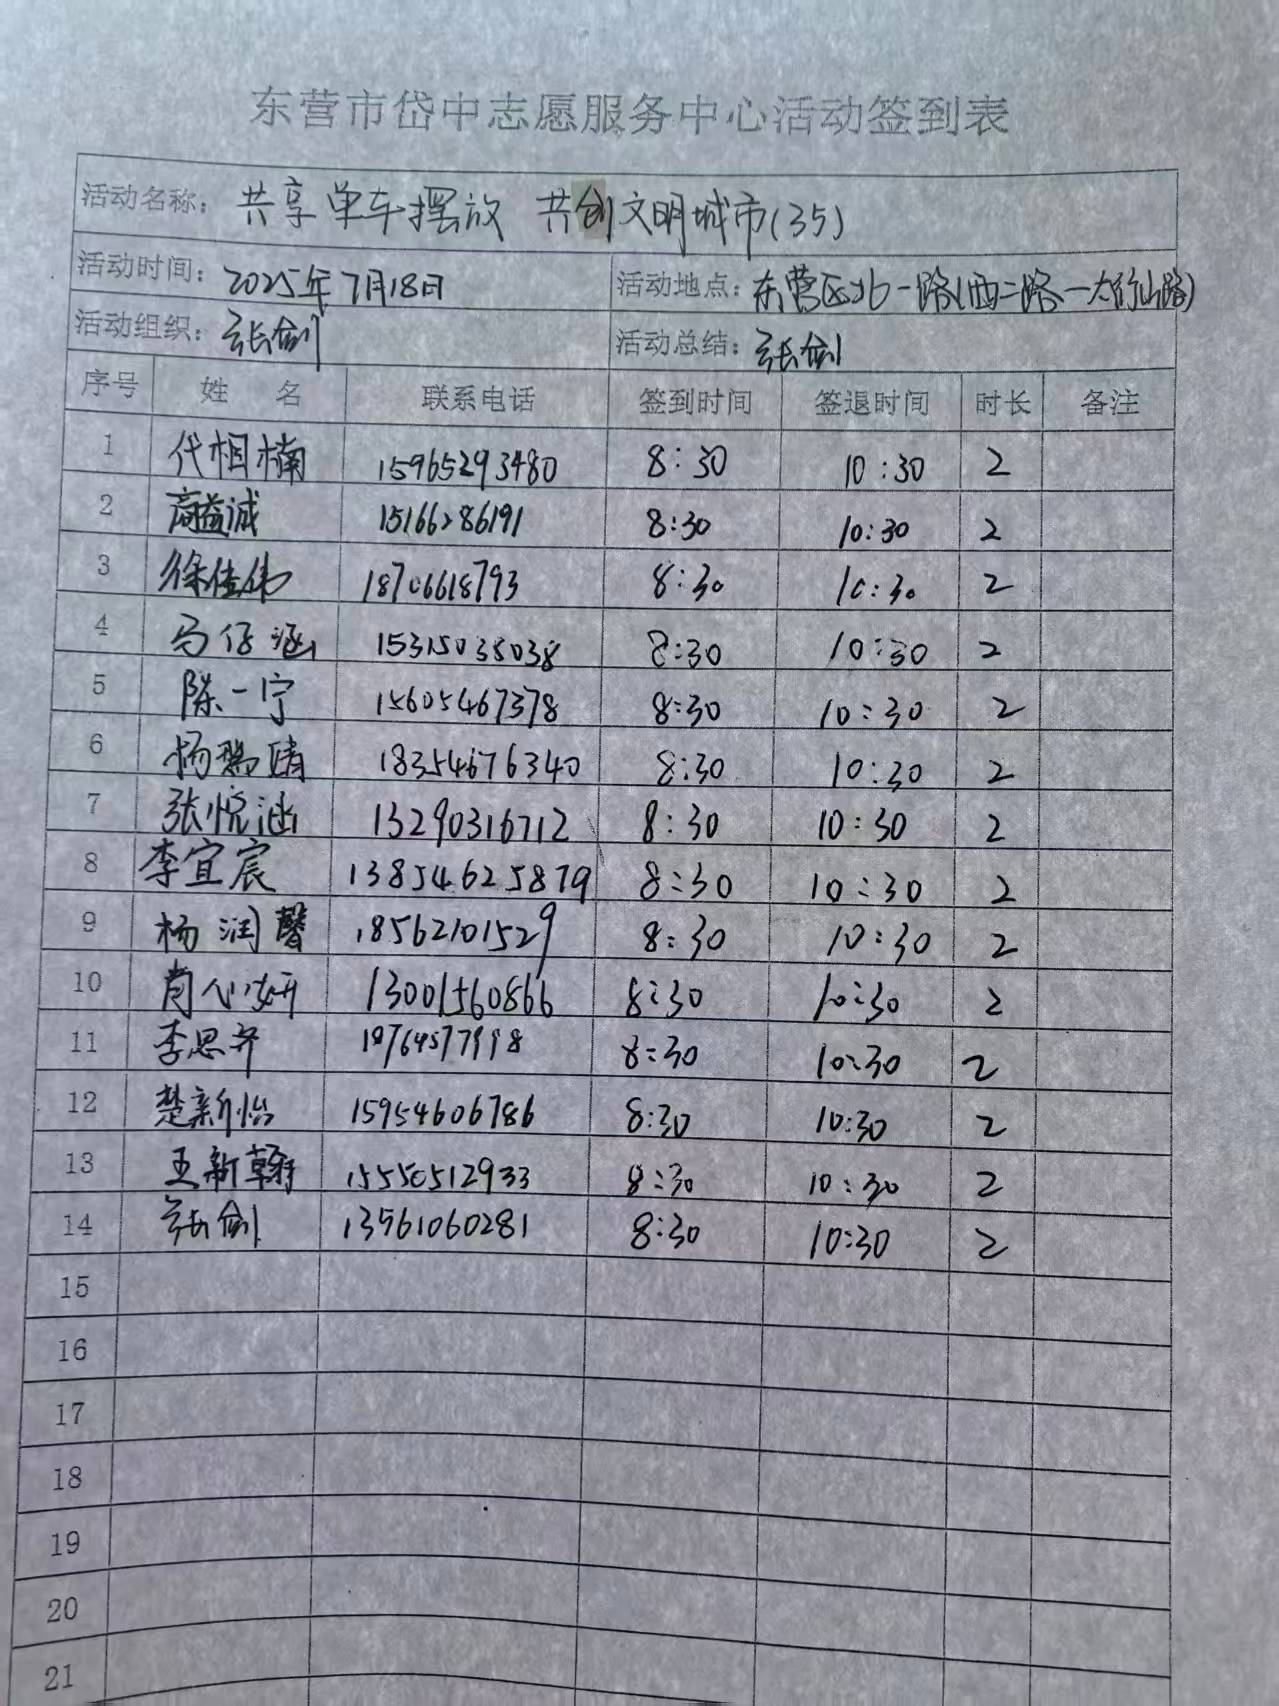 东营市岱中志愿服务中心活动签到表
活动名称: 共享单车摆放 共创文明城市(35)
活动时间: 2025年7月18日 活动地点: 东营区北一路(西二路一太行山路)
活动组织: 张剑 活动总结: 张剑
序号 姓 名 联系电话 签到时间 签退时间 时长 备注
1 代相楠 15965293480 8:30 10:30 2
2 高益诚 15166286191 8:30 10:30 2
3 徐佳伟 18706618793 8:30 10:30 2
4 马仔涵 15315035038 8:30 10:30 2
5 陈一宁 15605467378 8:30 10:30 2
6 杨瑞靖 18354676340 8:30 10:30 2
7 张悦涵 13290316712 8:30 10:30 2
8 李宜宸 13854625879 8:30 10:30 2
9 杨润馨 18562101529 8:30 10:30 2
10 肖心妍 13001560866 8:30 10:30 2
11 李思齐 8:30 10:30 2
12 楚新怡 15954606786 8:30 10:30 2
13 王新翰 15550512933 8:30 10:30 2
14 张剑 13561060281 8:30 10:30 2
15
16
17
18
19
20
21